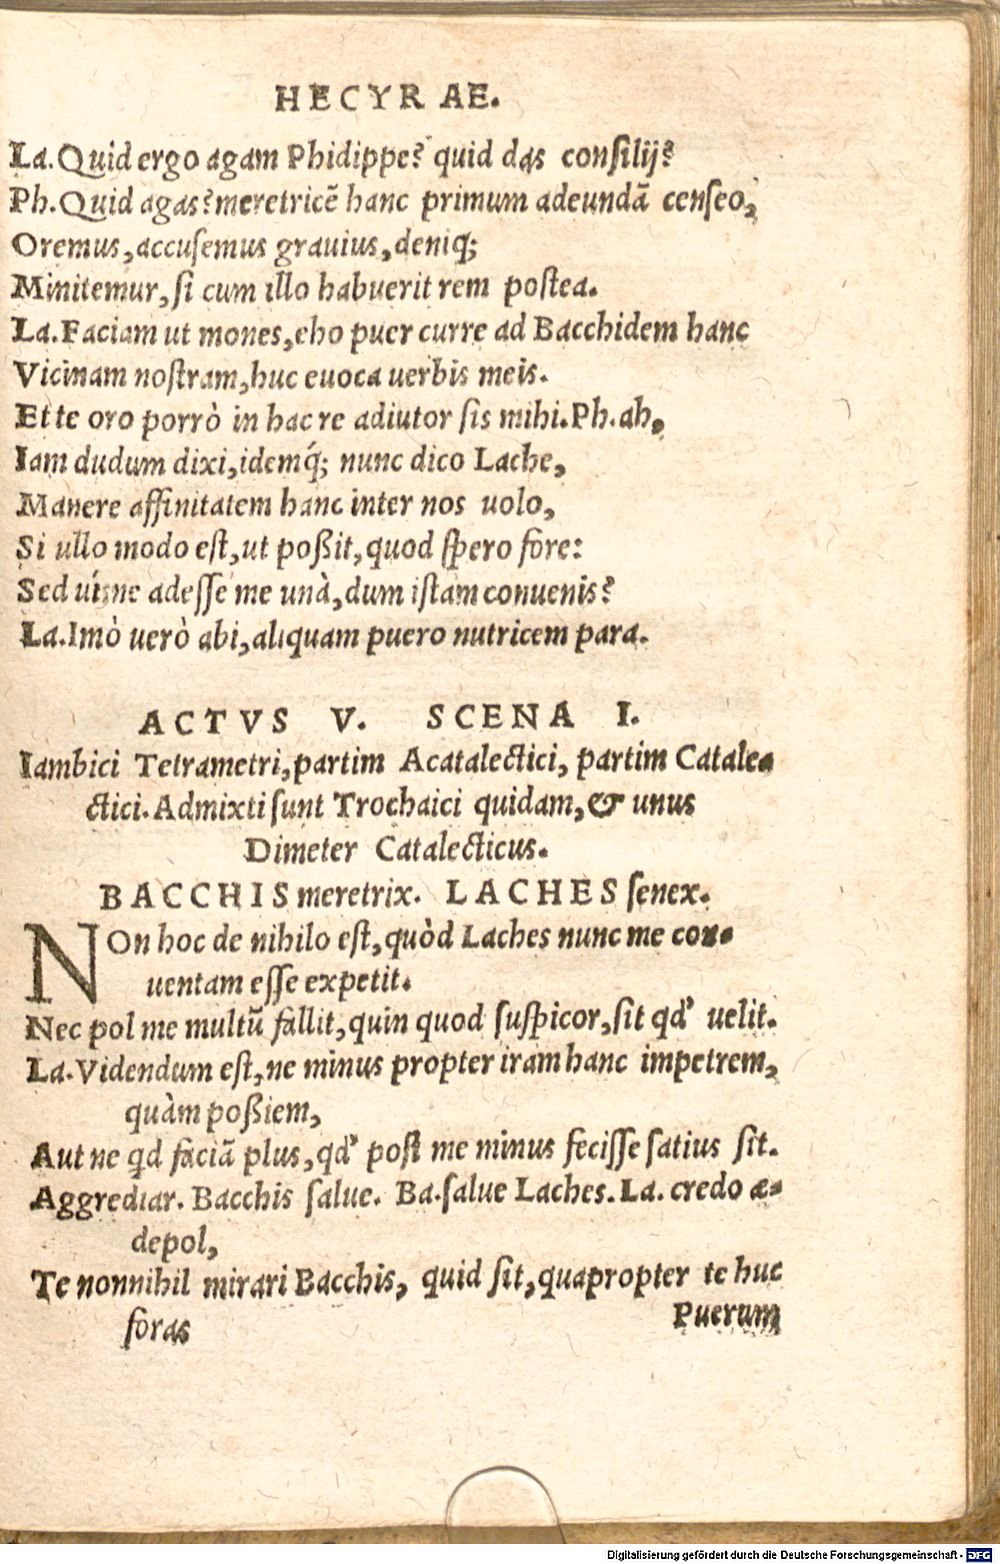 HECYRAE.
La. Quid ergo agam Phidippe? quid das consilij?
Ph. Quid agas? meretricē hanc primum adeundā censeo,
Oremus, accusemus grauius, deniq;
Minitemur, si cum illo habuerit rem postea.
La. Faciam ut mones, eho puer curre ad Bacchidem hanc
Vicinam nostram, huc euoca uerbis meis.
Et te oro porrò in hac re adiutor sis mihi. Ph. ah,
Iam dudum dixi, idemq́; nunc dico Lache,
Manere affinitatem hanc inter nos uolo,
Si ullo modo est, ut poßit, quod spero fore:
Sed uísne adesse me unà, dum istam conuenis?
La. Imò uerò abi, aliquam puero nutricem para.
ACTVS V. SCENA I.
Iambici Tetrametri, partim Acatalectici, partim Catale-
ctici. Admixti sunt Trochaici quidam, & unus
Dimeter Catalecticus.
BACCHIS meretrix. LACHES senex.
NOn hoc de nihilo est, quòd Laches nunc me con-
uentam esse expetit.
Nec pol me multū fallit, quin quod suspicor, sit qd' uelit.
La. Videndum est, ne minus propter iram hanc impetrem,
quàm poßiem,
Aut ne qd faciā plus, qd' post me minus fecisse satius sit.
Aggrediar. Bacchis salue. Ba. salue Laches. La. credo æ-
depol,
Te nonnihil mirari Bacchis, quid sit, quapropter te huc
foras
Puerum
Digitalisierung gefördert durch die Deutsche Forschungsgemeinschaft - DFG